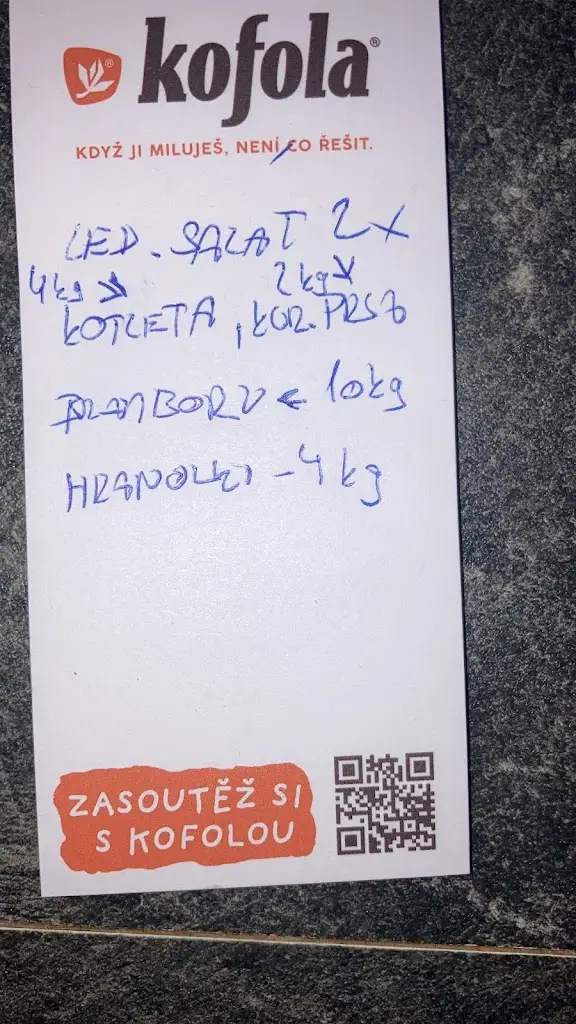 kofola®
KDYŽ JI MILUJEŠ, NENÍ CO ŘEŠIT.
LED. SALAT 2x
4kg 2kg
KOTLETA, KUR. PRSA
BRAMBORY ← 10kg
HRANOLKY - 4 kg
ZASOUTĚŽ SI
S KOFOLOU